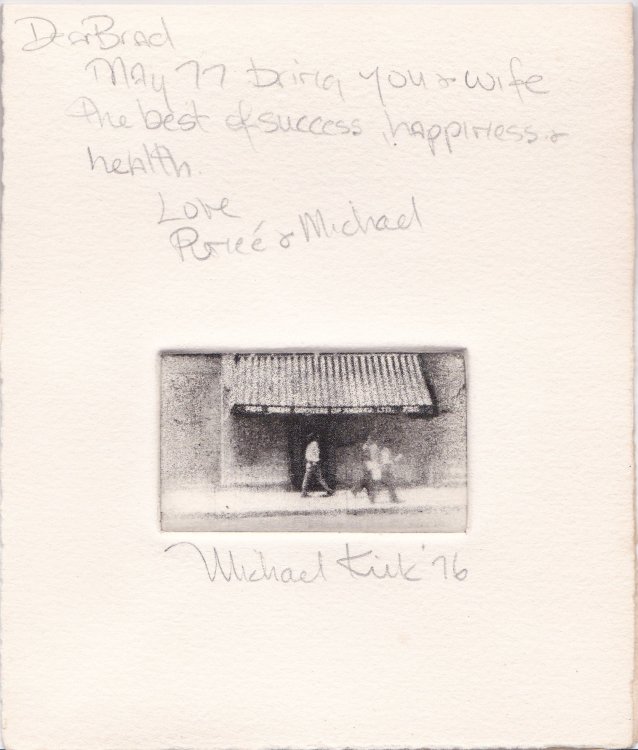 Dear Brad
May 77 bring you & wife
the best of success, happiness &
health.
Love
& Michael
OF AMERICA LTD.
Michael Kirk '76